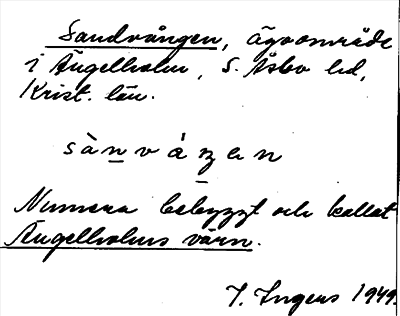 Sandvången, ägoområde
i Ängelholm, S. Åsbo hd,
Krist. län.
sànváŋen
Numera bebyggt och kallat
Ängelholms värn.
J. Ingers 1949.